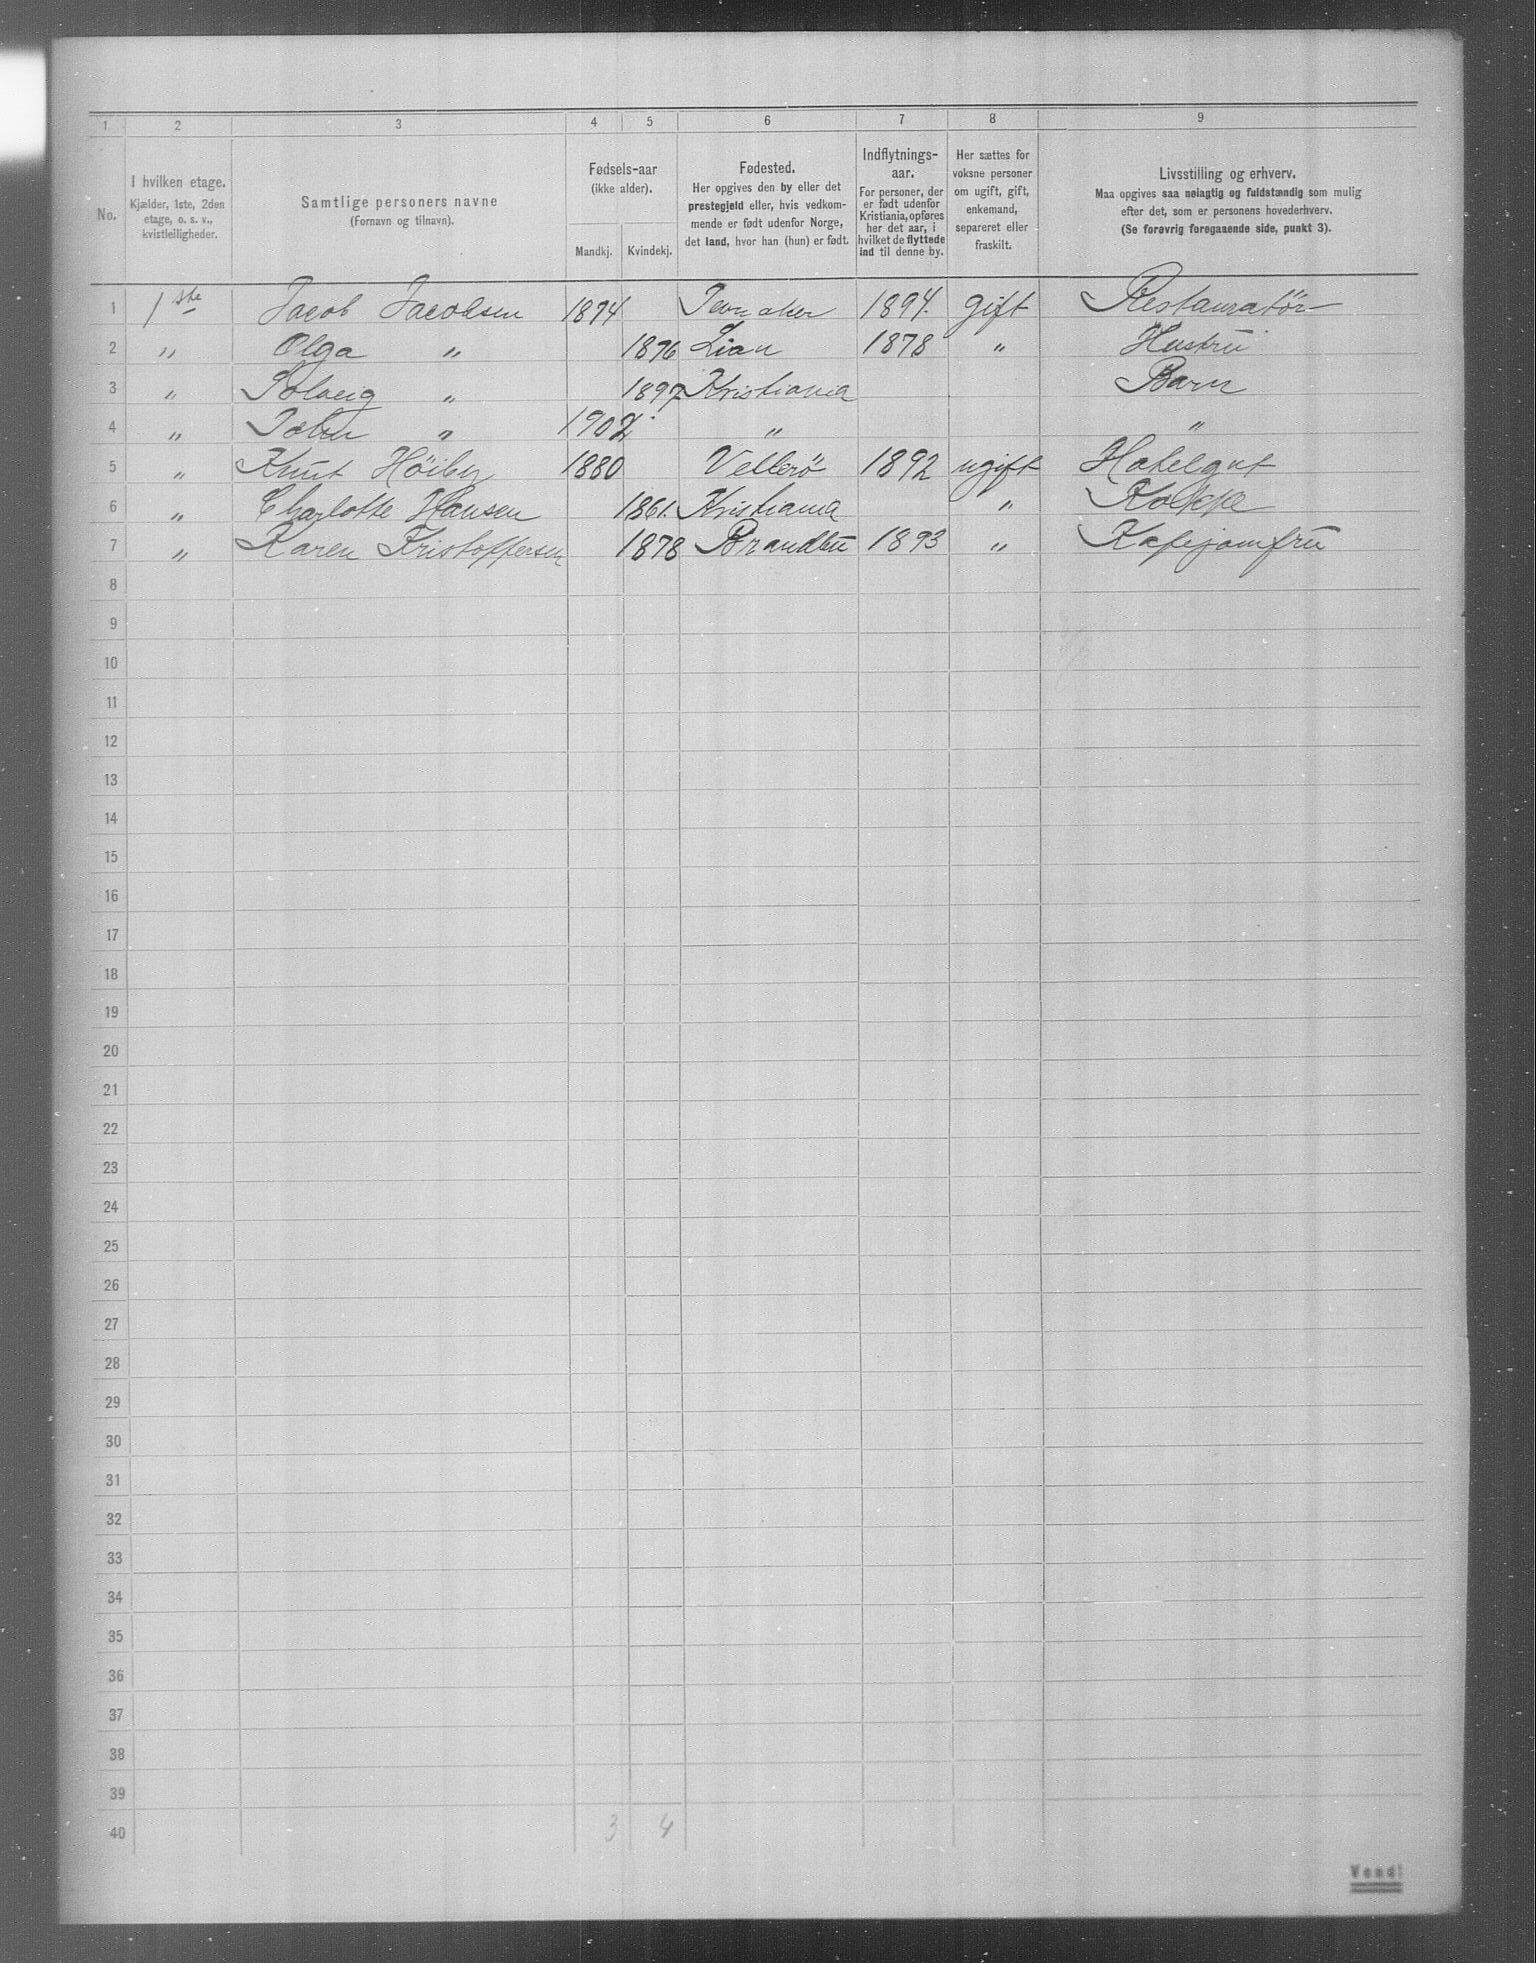 1 2 3 4 5 6 7 8 9
No.
I hvilken etage.
Kjælder, 1ste, 2den
etage, o. s. v.,
kvistleiligheder.
Samtlige personers navne
(Fornavn og tilnavn).
Fødsels-aar
(ikke alder).
Mandkj. Kvindekj.
Fødested.
Her opgives den by eller det
prestegjeld eller, hvis vedkom-
mende er født udenfor Norge,
det land, hvor han (hun) er født.
Indflytnings-
aar.
For personer, der
er født udenfor
Kristiania, opføres
her det aar, i
hvilket de flyttede
ind til denne by.
Her sættes for
voksne personer
om ugift, gift,
enkemand,
separeret eller
fraskilt.
Livsstilling og erhverv.
Maa opgives saa nøiagtig og fuldstændig som mulig
efter det, som er personens hovederhverv.
(Se forøvrig foregaaende side, punkt 3).
1 1ste Jacob Jacobsen 1874 Jevnaker 1894. gift Restauratør
2 " Olga " 1876 Lian 1878 " Hustru
3 " Solveig " 1897 Kristiania Barn
4 " " 1902 " "
5 " Knut Höiby 1880 1892 ugift Hotelgut
6 " Charlotte Hansen 1861. Kristiania " Kokke
7 " Karen Kristoffersen 1878 Brandbu 1893 " Kafejomfru
8
9
10
11
12
13
14
15
16
17
18
19
20
21
22
23
24
25
26
27
28
29
30
31
32
33
34
35
36
37
38
39
40 3 4
Vend!